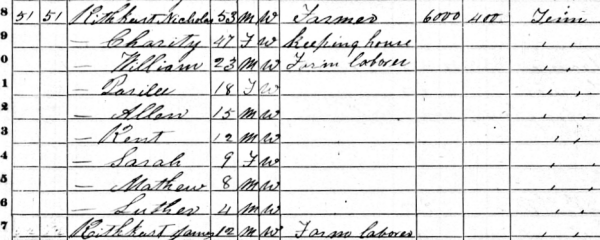 8 51 51 Rithhart Nicholas 53 M W Farmer 6000 400 Tenn
9 — Charity 47 F W Keeping house " "
0 — William 23 M W Farm laborer " "
1 — Parilee 18 F W " "
2 — Allen 15 M W " "
3 — Kent 12 M W " "
4 — Sarah 9 F W " "
5 — Mathew 8 M W " "
6 — Luther 4 M W " "
7 Rithhart James 12 M W Farm laborer " "